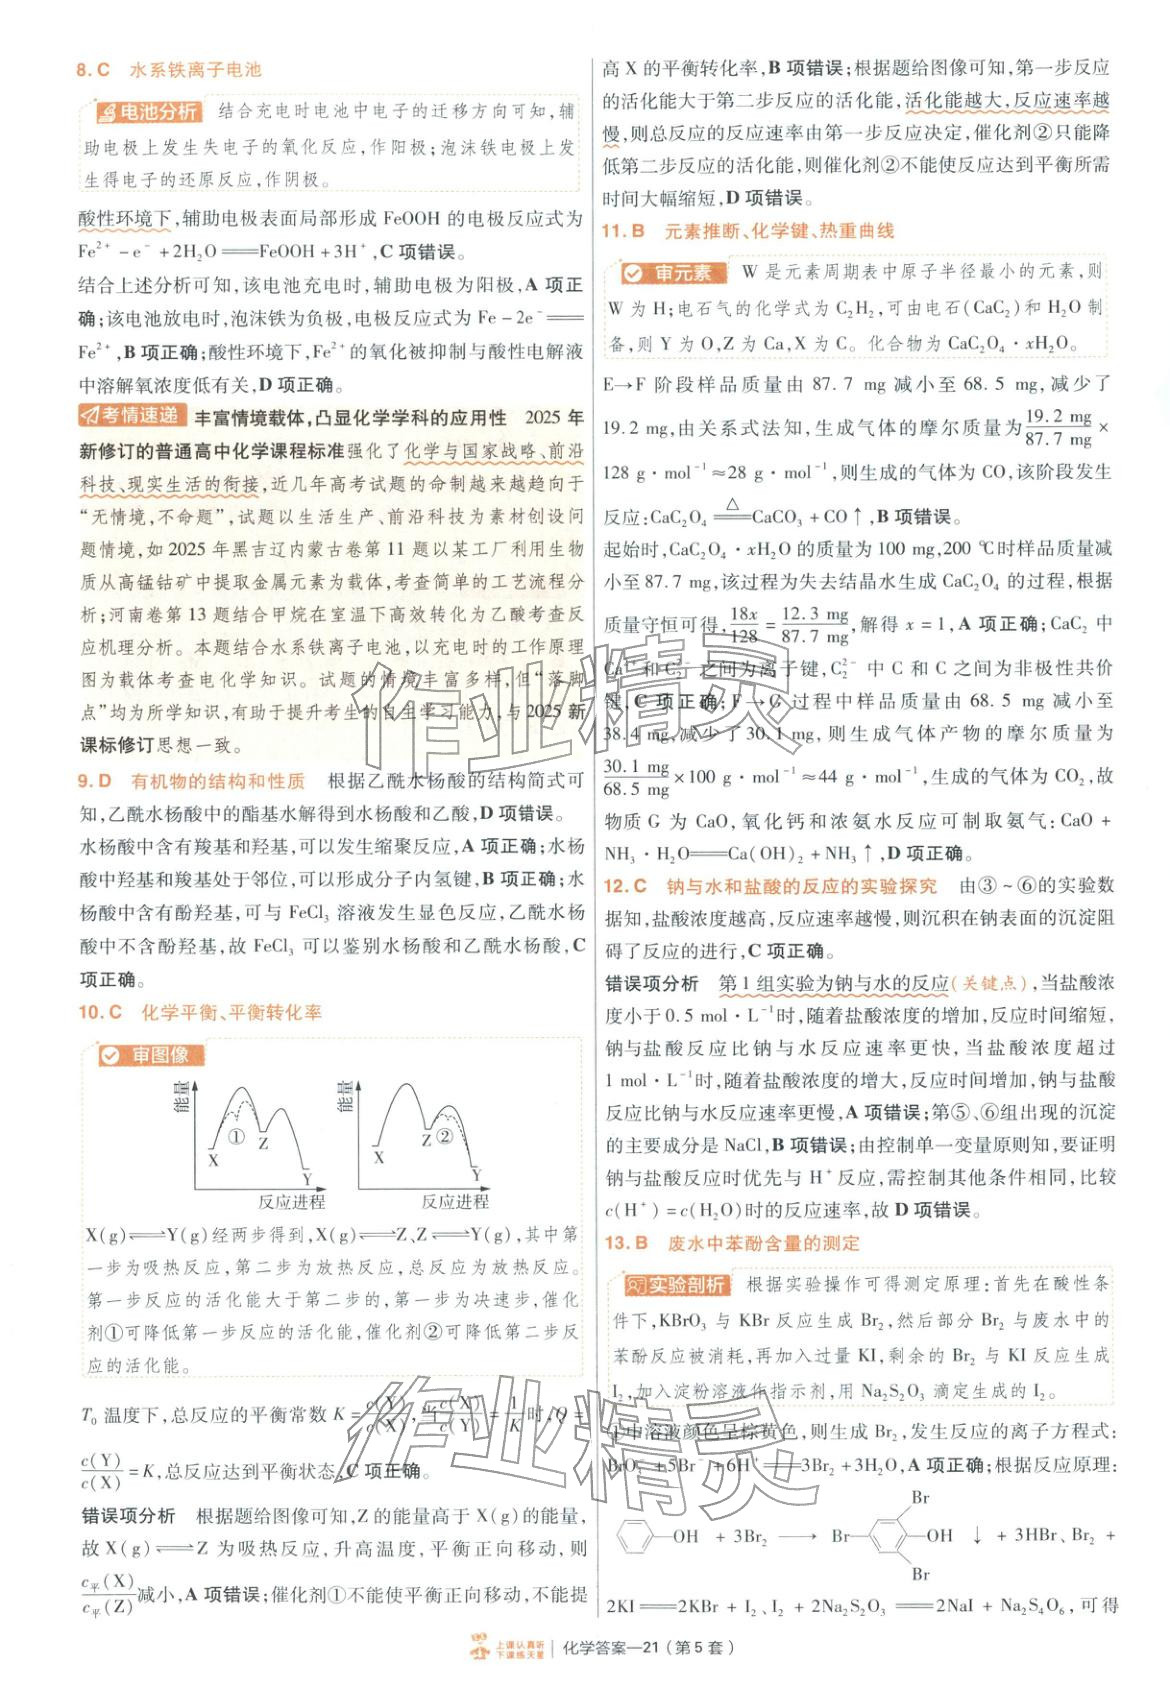 8. C 水系铁离子电池
电池分析 结合充电时电池中电子的迁移方向可知,辅
助电极上发生失电子的氧化反应,作阳极;泡沫铁电极上发
生得电子的还原反应,作阴极。
酸性环境下,辅助电极表面局部形成 FeOOH 的电极反应式为
Fe²⁺ − e⁻ + 2H₂O══FeOOH + 3H⁺,C 项错误。
结合上述分析可知,该电池充电时,辅助电极为阳极,A 项正
确;该电池放电时,泡沫铁为负极,电极反应式为 Fe − 2e⁻══
Fe²⁺,B 项正确;酸性环境下,Fe²⁺的氧化被抑制与酸性电解液
中溶解氧浓度低有关,D 项正确。
考情速递 丰富情境载体,凸显化学学科的应用性 2025 年
新修订的普通高中化学课程标准强化了化学与国家战略、前沿
科技、现实生活的衔接,近几年高考试题的命制越来越趋向于
“无情境,不命题”,试题以生活生产、前沿科技为素材创设问
题情境,如 2025 年黑吉辽内蒙古卷第 11 题以某工厂利用生物
质从高锰钴矿中提取金属元素为载体,考查简单的工艺流程分
析;河南卷第 13 题结合甲烷在室温下高效转化为乙酸考查反
应机理分析。本题结合水系铁离子电池,以充电时的工作原理
图为载体考查电化学知识。试题的情境丰富多样,但“落脚
点”均为所学知识,有助于提升考生的自主学习能力,与 2025 新
课标修订思想一致。
9. D 有机物的结构和性质 根据乙酰水杨酸的结构简式可
知,乙酰水杨酸中的酯基水解得到水杨酸和乙酸,D 项错误。
水杨酸中含有羧基和羟基,可以发生缩聚反应,A 项正确;水杨
酸中羟基和羧基处于邻位,可以形成分子内氢键,B 项正确;水
杨酸中含有酚羟基,可与 FeCl₃ 溶液发生显色反应,乙酰水杨
酸中不含酚羟基,故 FeCl₃ 可以鉴别水杨酸和乙酰水杨酸,C
项正确。
10. C 化学平衡、平衡转化率
审图像
能量 ① X Z Y 反应进程
能量 ② X Z Y 反应进程
X(g)⇌Y(g)经两步得到,X(g)⇌Z、Z⇌Y(g),其中第
一步为吸热反应,第二步为放热反应,总反应为放热反应。
第一步反应的活化能大于第二步的,第一步为决速步,催化
剂①可降低第一步反应的活化能,催化剂②可降低第二步反
应的活化能。
T₀ 温度下,总反应的平衡常数 K = c(Y)/c(X),当 c(X)/c(Y) = 1/K 时,Q =
c(Y)/c(X) = K,总反应达到平衡状态,C 项正确。
错误项分析 根据题给图像可知,Z 的能量高于 X(g)的能量,
故 X(g)⇌Z 为吸热反应,升高温度,平衡正向移动,则
c平(X)/c平(Z)减小,A 项错误;催化剂①不能使平衡正向移动,不能提
高 X 的平衡转化率,B 项错误;根据题给图像可知,第一步反应
的活化能大于第二步反应的活化能,活化能越大,反应速率越
慢,则总反应的反应速率由第一步反应决定,催化剂②只能降
低第二步反应的活化能,则催化剂②不能使反应达到平衡所需
时间大幅缩短,D 项错误。
11. B 元素推断、化学键、热重曲线
审元素 W 是元素周期表中原子半径最小的元素,则
W 为 H;电石气的化学式为 C₂H₂,可由电石(CaC₂)和 H₂O 制
备,则 Y 为 O,Z 为 Ca,X 为 C。化合物为 CaC₂O₄·xH₂O。
E→F 阶段样品质量由 87.7 mg 减小至 68.5 mg,减少了
19.2 mg,由关系式法知,生成气体的摩尔质量为 19.2 mg/87.7 mg ×
128 g·mol⁻¹≈28 g·mol⁻¹,则生成的气体为 CO,该阶段发生
反应:CaC₂O₄ ══△ CaCO₃ + CO↑,B 项错误。
起始时,CaC₂O₄·xH₂O 的质量为 100 mg,200 ℃时样品质量减
小至 87.7 mg,该过程为失去结晶水生成 CaC₂O₄ 的过程,根据
质量守恒可得,18x/128 = 12.3 mg/87.7 mg,解得 x = 1,A 项正确;CaC₂ 中
Ca²⁺和 C₂²⁻ 之间为离子键,C₂²⁻ 中 C 和 C 之间为非极性共价
键,C 项正确;F→G 过程中样品质量由 68.5 mg 减小至
38.4 mg,减少了 30.1 mg,则生成气体产物的摩尔质量为
30.1 mg/68.5 mg ×100 g·mol⁻¹≈44 g·mol⁻¹,生成的气体为 CO₂,故
物质 G 为 CaO,氧化钙和浓氨水反应可制取氨气:CaO +
NH₃·H₂O══Ca(OH)₂ + NH₃↑,D 项正确。
12. C 钠与水和盐酸的反应的实验探究 由③~⑥的实验数
据知,盐酸浓度越高,反应速率越慢,则沉积在钠表面的沉淀阻
碍了反应的进行,C 项正确。
错误项分析 第 1 组实验为钠与水的反应(关键点),当盐酸浓
度小于 0.5 mol·L⁻¹时,随着盐酸浓度的增加,反应时间缩短,
钠与盐酸反应比钠与水反应速率更快,当盐酸浓度超过
1 mol·L⁻¹时,随着盐酸浓度的增大,反应时间增加,钠与盐酸
反应比钠与水反应速率更慢,A 项错误;第⑤、⑥组出现的沉淀
的主要成分是 NaCl,B 项错误;由控制单一变量原则知,要证明
钠与盐酸反应时优先与 H⁺反应,需控制其他条件相同,比较
c(H⁺) = c(H₂O)时的反应速率,故 D 项错误。
13. B 废水中苯酚含量的测定
实验剖析 根据实验操作可得测定原理:首先在酸性条
件下,KBrO₃ 与 KBr 反应生成 Br₂,然后部分 Br₂ 与废水中的
苯酚反应被消耗,再加入过量 KI,剩余的 Br₂ 与 KI 反应生成
I₂,加入淀粉溶液作指示剂,用 Na₂S₂O₃ 滴定生成的 I₂。
①中溶液颜色呈棕黄色,则生成 Br₂,发生反应的离子方程式:
BrO₃⁻ + 5Br⁻ + 6H⁺══3Br₂ + 3H₂O,A 项正确;根据反应原理:
Br
OH + 3Br₂ → Br OH ↓ + 3HBr、Br₂ +
Br
2KI══2KBr + I₂、I₂ + 2Na₂S₂O₃ ══2NaI + Na₂S₄O₆,可得
上课认真听
下课练天星
化学答案—21(第 5 套)
作业精灵
作业精灵